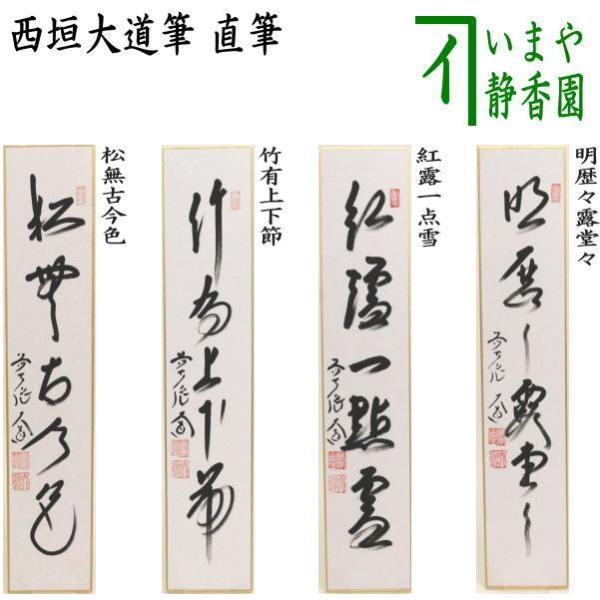 西垣大道筆 直筆
いまや
静香園
松無古今色
松無古今色
竹有上下節
竹有上下節
紅露一点雪
紅爐一點雪
明歴々露堂々
明歴々露堂々